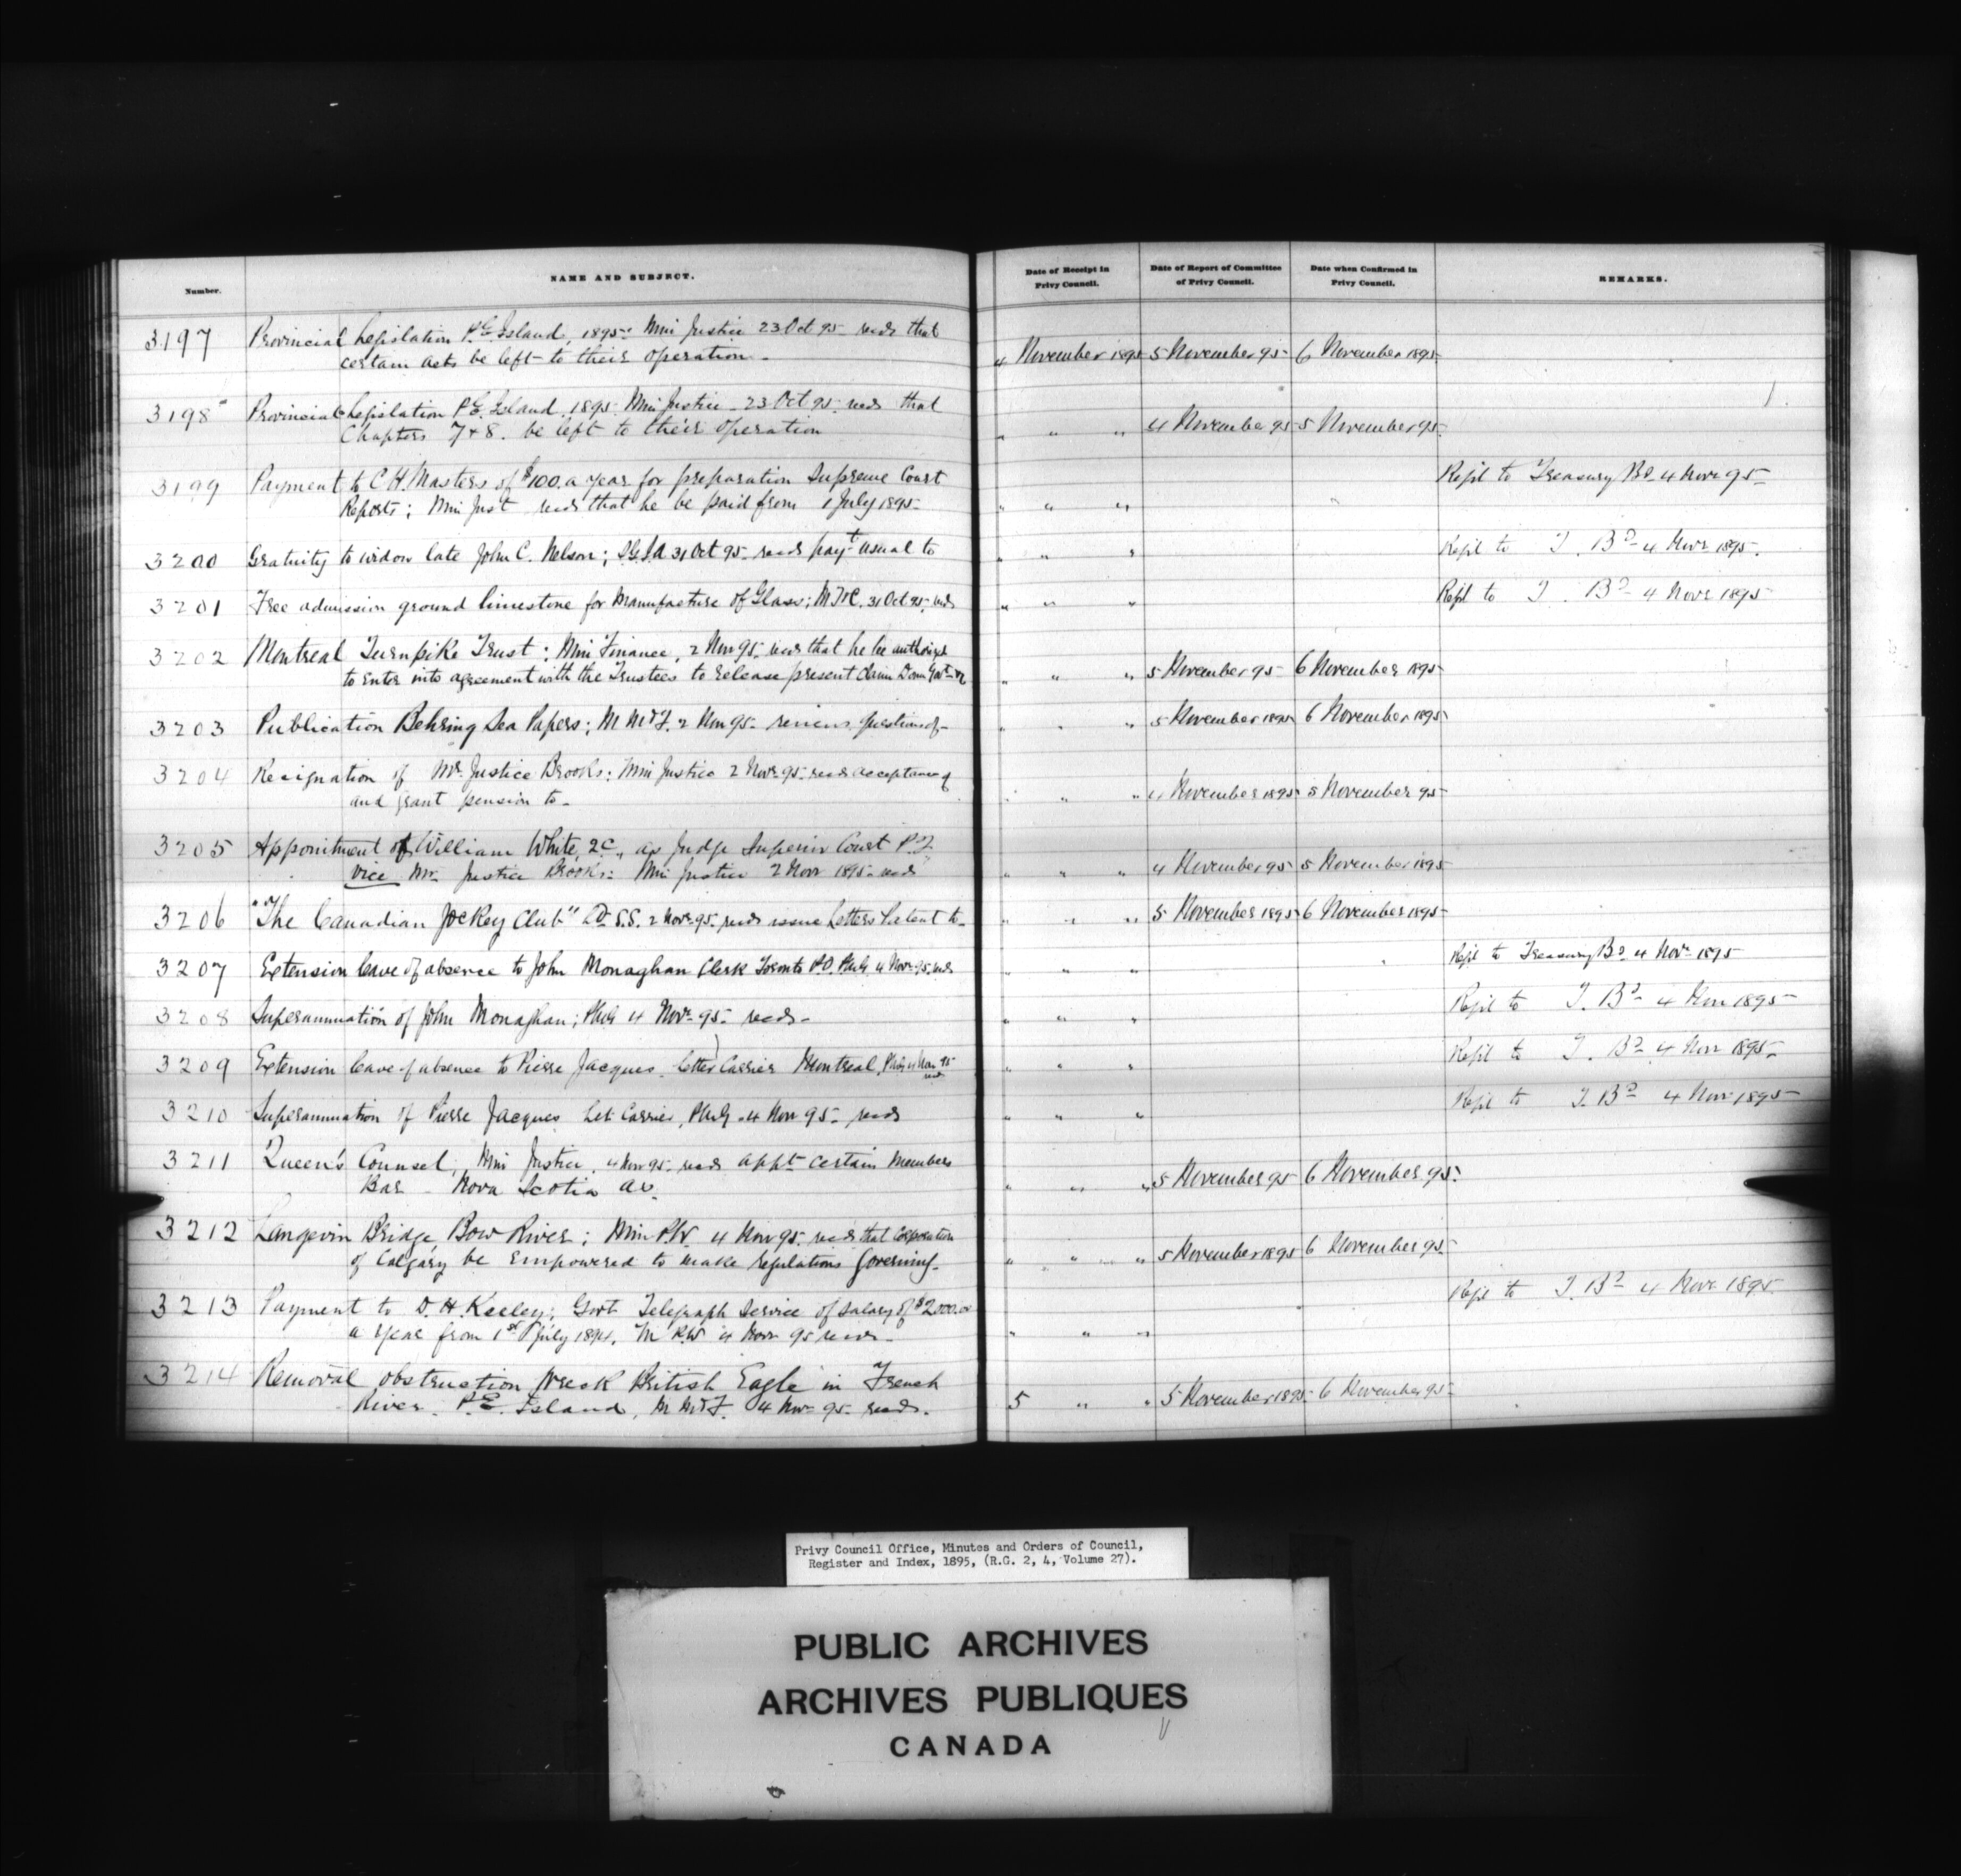 Number.
NAME AND SUBJECT.
Date of Receipt in Privy Council.
Date of Report of Committee of Privy Council.
Date when Confirmed in Privy Council.
REMARKS.
3197 Provincial Legislation P.E. Island, 1895: Min Justice 23 Oct 95 recds that
certain acts be left to their operation. 4 November 1895 5 November 95 6 November 1895
3198 Provincial Legislation P.E. Island, 1895. Min Justice 23 Oct 95 recds that
Chapters 7 + 8. be left to their operation " " " 4 November 95 5 November 95.
3199 Payment to C.H. Masters of $100. a year for preparation Supreme Court Refd to Treasury Bd 4 Novr 95
Reports; Min Just recds that he be paid from 1 July 1895 " " "
3200 Gratuity to widow late John C. Nelson; 31 Oct 95 recds payt usual to " " " Refd to T. Bd 4 Novr 1895.
3201 Free admission ground limestone for Manufacture of Glass; M T+C. 31 Oct 95 recds " " " Refd to T. Bd 4 Novr 1895
3202 Montreal Turnpike Trust: Min Finance, 2 Nov 95 recds that he be authorized
to enter into agreement with the Trustees to release present claim Dom Govt " " " 5 November 95 6 November 1895
3203 Publication Behring Sea Papers; M M+F. 2 Nov 95 reviews question of " " " 5 November 1895 6 November 1895
3204 Resignation of Mr. Justice Brooks: Min Justice 2 Novr 95 recds acceptance of
and grant pension to. " " " 4 November 1895 5 November 95
3205 Appointment of William White, QC, as Judge Superior Court P.Q
vice Mr. Justice Brooks: Min Justice 2 Novr 1895 recds " " " 4 November 95 5 November 1895
3206 "The Canadian Jockey Club" S.S. 2 Novr 95 recds issue Letters Patent to " " " 5 November 1895 6 November 1895
3207 Extension leave of absence to John Monaghan Clerk Toronto P.O. PMG 4 Novr 95 recds " " " Refd to Treasury Bd 4 Novr 1895
3208 Superannuation of John Monaghan; PMG 4 Novr 95 recds " " " Refd to T. Bd 4 Novr 1895
3209 Extension leave of absence to Pierre Jacques Letter Carrier Montreal, PMG 4 Nov 95 recds " " " Refd to T. Bd 4 Novr 1895
3210 Superannuation of Pierre Jacques Let Carrier, PMG 4 Nov 95 recds " " " Refd to T. Bd 4 Novr 1895
3211 Queen's Counsel, Min Justice, 4 Nov 95 recds appt certain members
Bar Nova Scotia as. " " " 5 November 95 6 November 95.
3212 Langevin Bridge Bow River; Min P.W. 4 Nov 95 recds that Corporation
of Calgary be empowered to make regulations governing. " " " 5 November 1895 6 November 95.
3213 Payment to D.H. Keeley; Govt Telegraph Service of salary of $2000.00 Refd to T. Bd 4 Novr 1895
a year from 1st July 1894, M P.W 4 Novr 95 recds " " "
3214 Removal obstruction Wreck British Eagle in French
River. P.E. Island, M M+F. 4 Nov 95 recds. 5 " " 5 November 1895 6 November 95
Privy Council Office, Minutes and Orders of Council,
Register and Index, 1895, (R.G. 2, 4, Volume 27).
PUBLIC ARCHIVES
ARCHIVES PUBLIQUES
CANADA